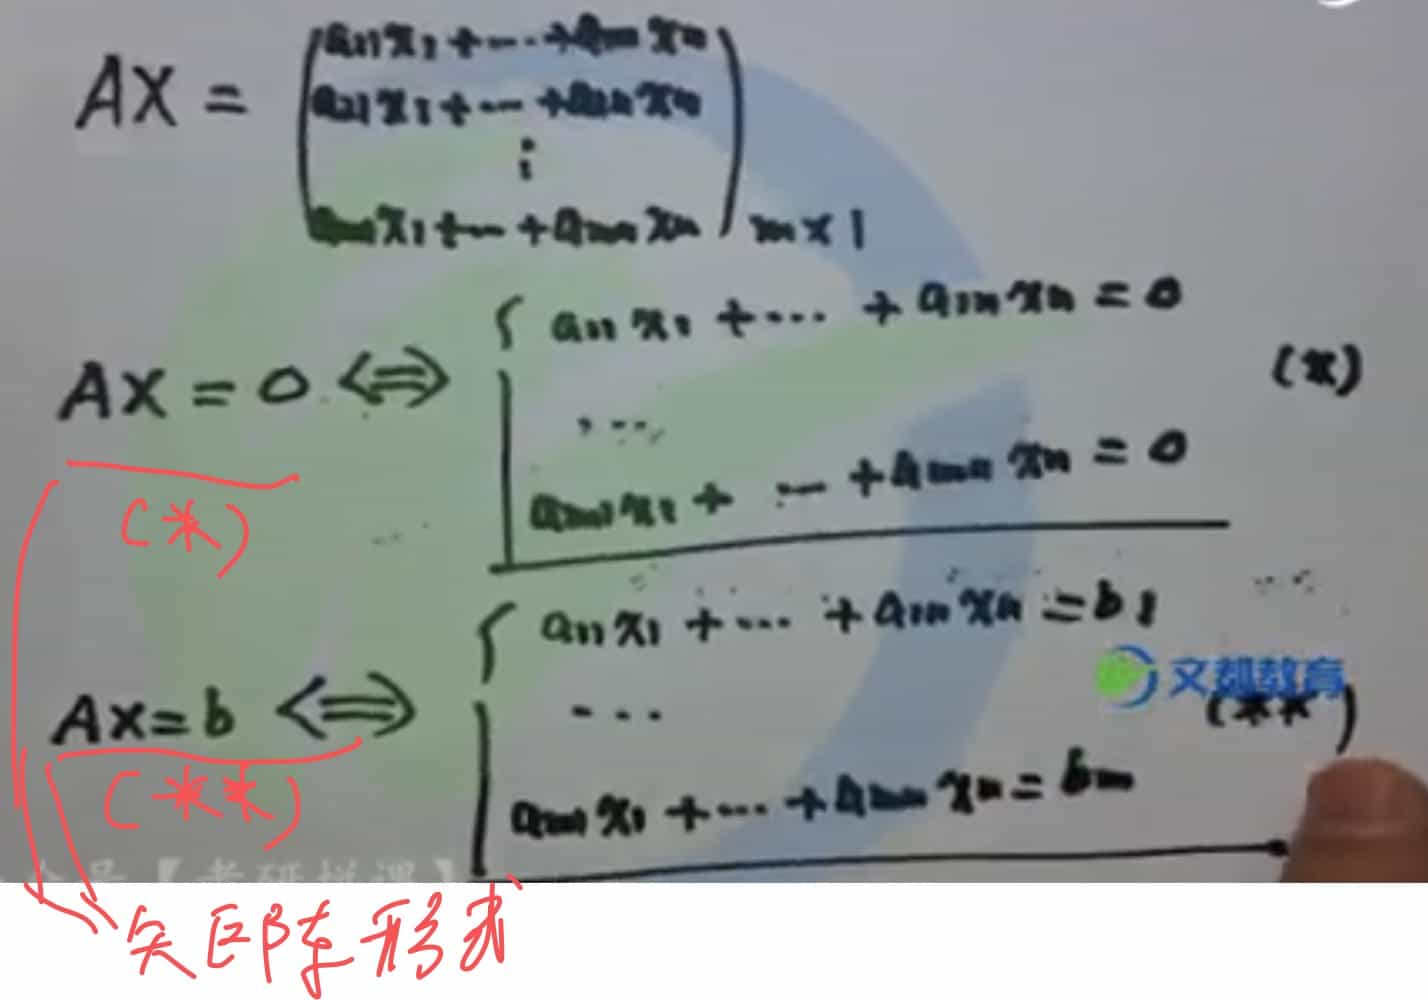 AX = ( a11x1 + ... + a1nxn
a21x1 + ... + a2nxn
⋮
am1x1 + ... + amnxn ) m×1
AX = 0 ⇔ { a11x1 + ... + a1nxn = 0
... (*)
am1x1 + ... + amnxn = 0
(*)
AX = b ⇔ { a11x1 + ... + a1nxn = b1
文都教育
... (**)
am1x1 + ... + amnxn = bm
(**)
【考研拼课】
矩阵形式